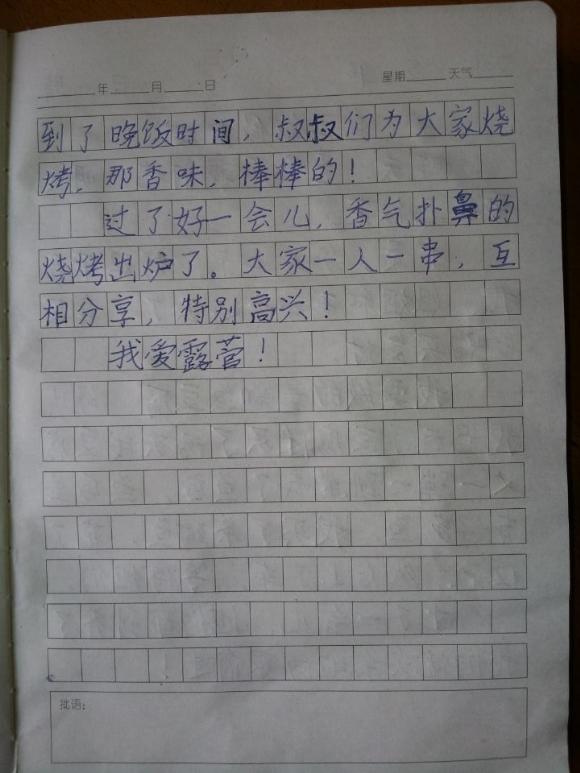 年 月 日 星期 天气
到了晚饭时间，叔叔们为大家烧
烤，那香味，棒棒的！
过了好一会儿，香气扑鼻的
烧烤出炉了。大家一人一串，互
相分享，特别高兴！
我爱露营！
批语：